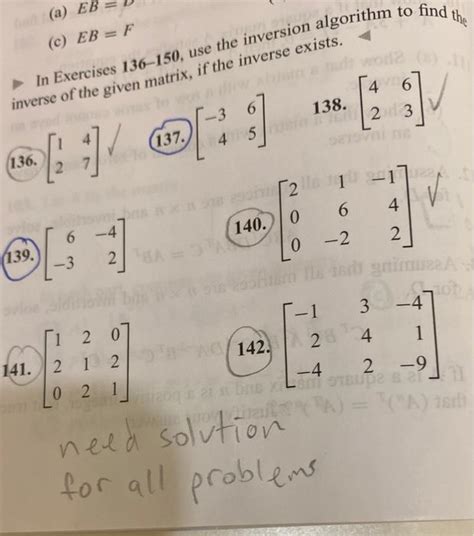 (a) EB = D
(c) EB = F
► In Exercises 136–150, use the inversion algorithm to find the
inverse of the given matrix, if the inverse exists. ◄
136. [1 4
2 7]
137. [-3 6
4 5]
138. [4 6
2 3]
139. [6 -4
-3 2]
140. [2 1 -1
0 6 4
0 -2 2]
141. [1 2 0
2 1 2
0 2 1]
142. [-1 3 -4
2 4 1
-4 2 -9]
need solution
for all problems